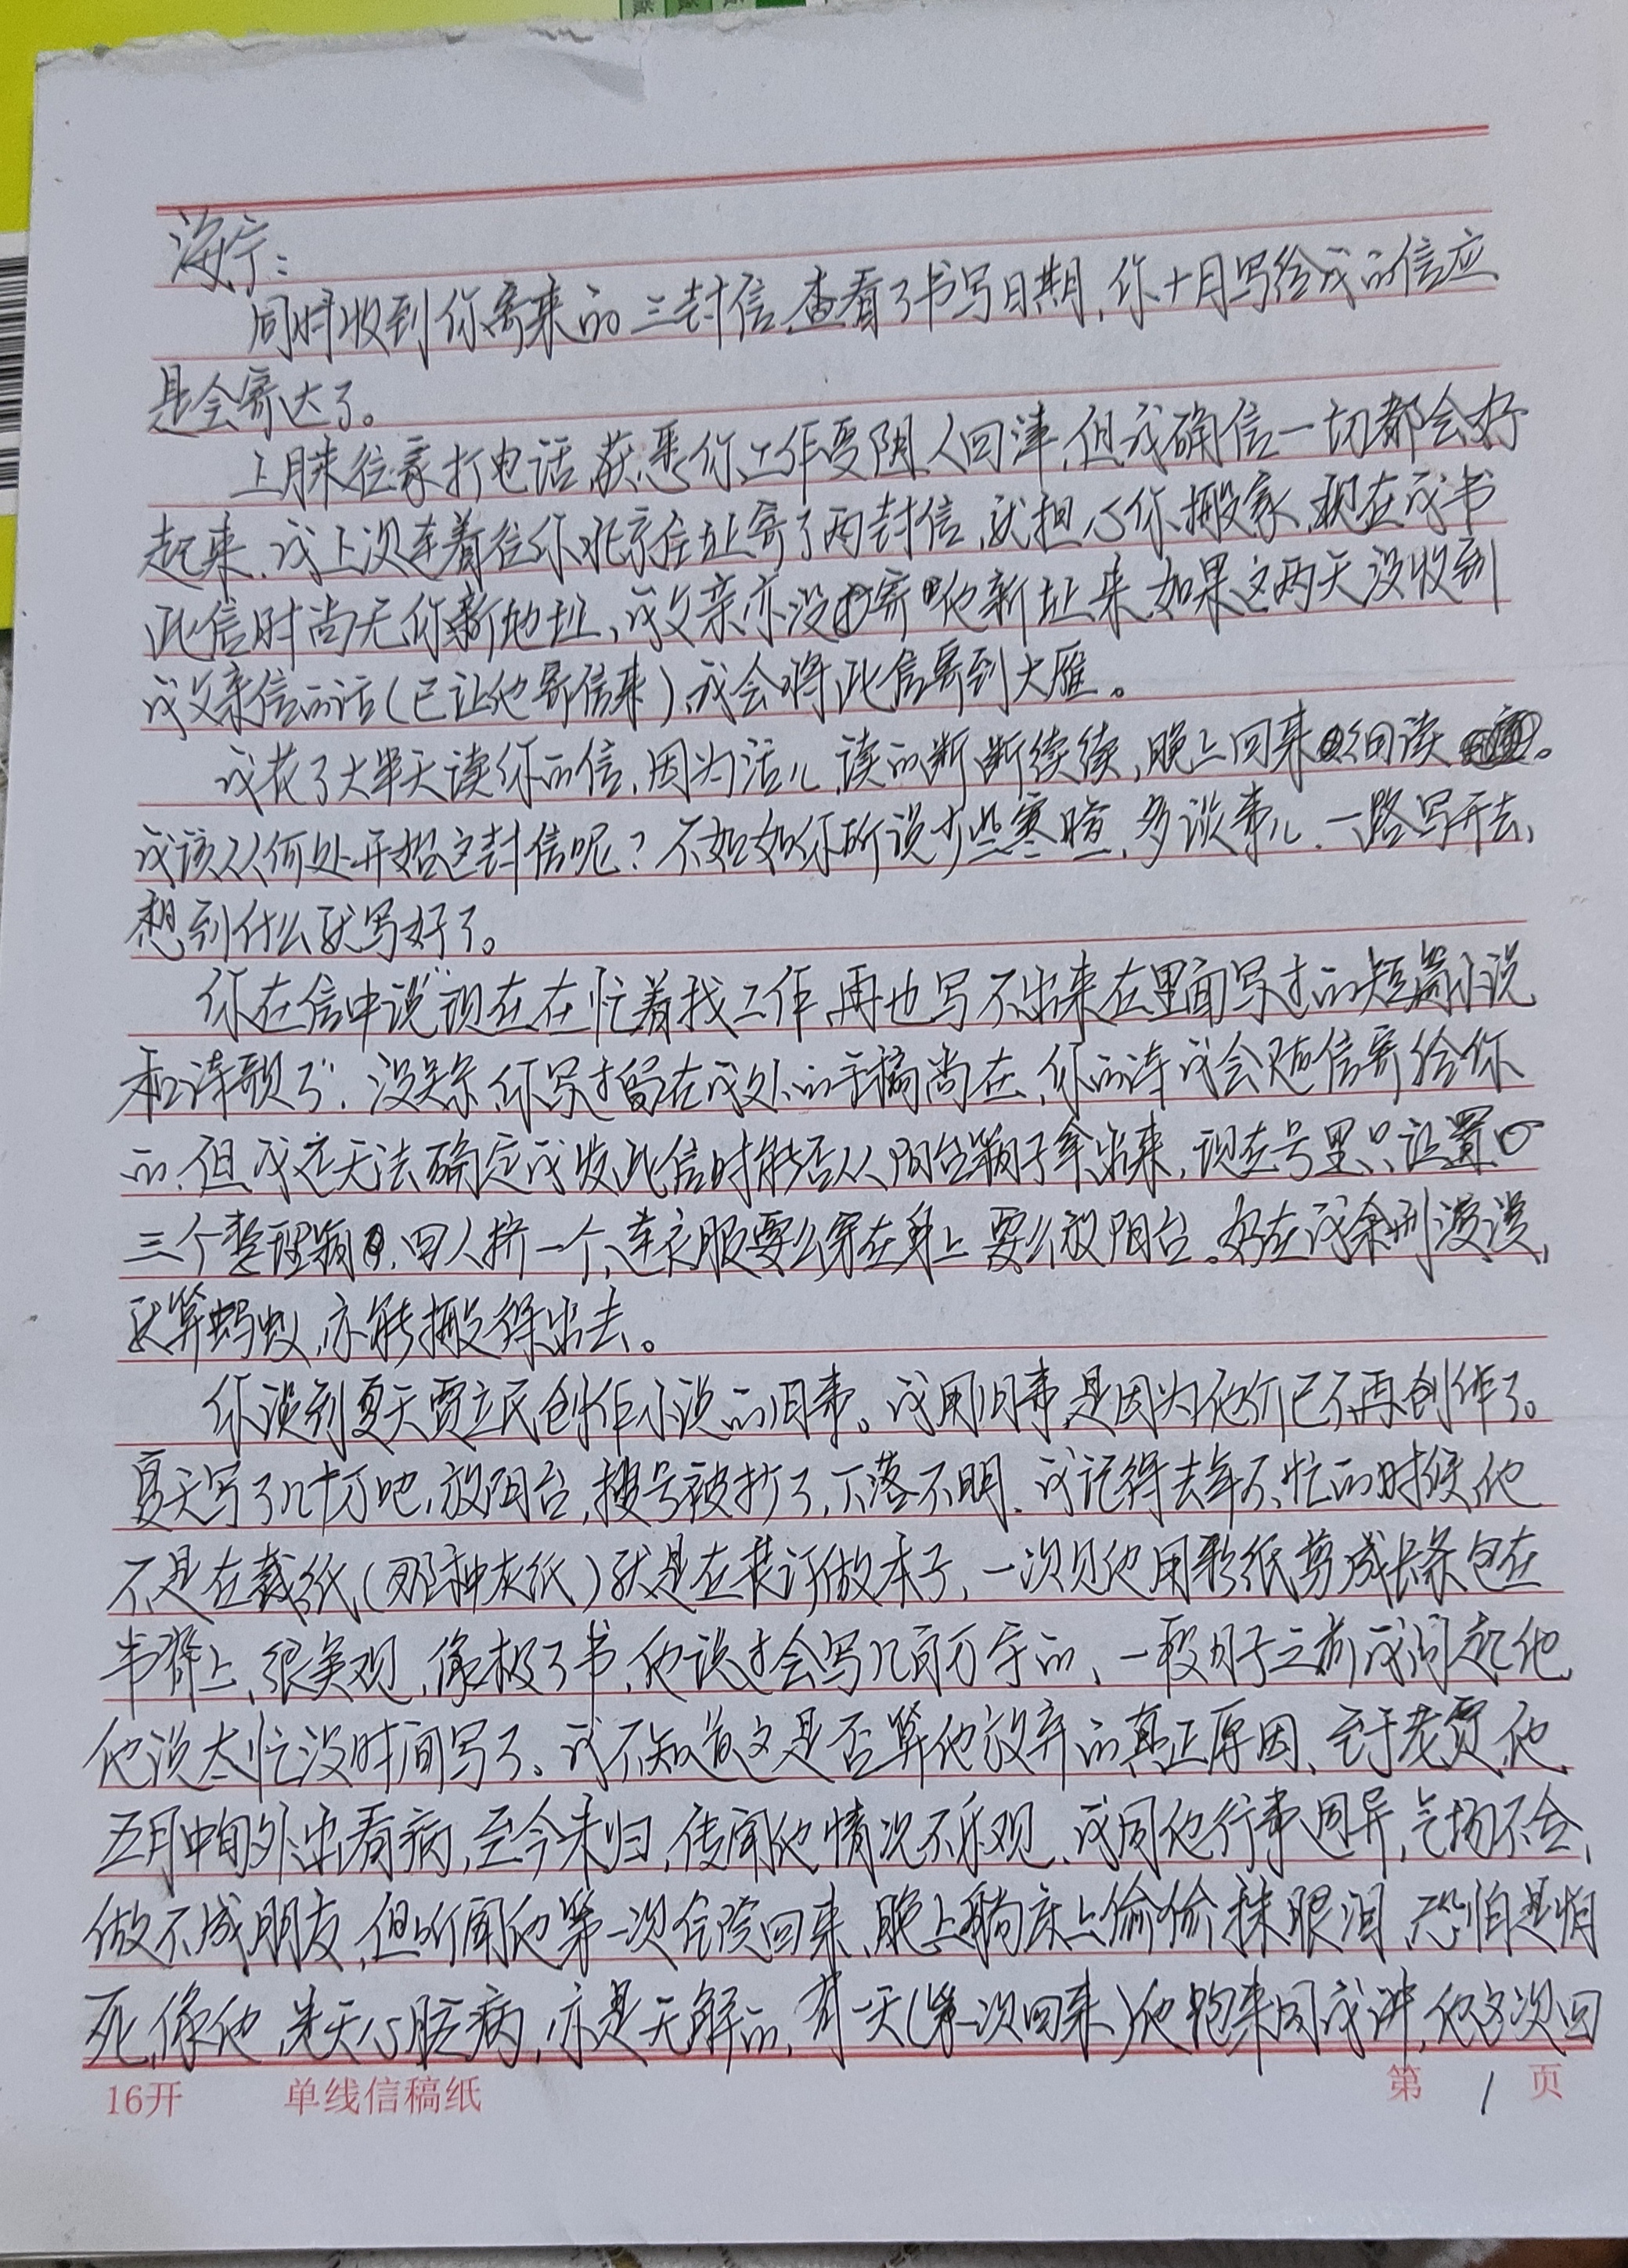 海宁：
同时收到你寄来的三封信，查看了书写日期，你十月写给我的信应
是会寄达了。
上月末往家打电话，获悉你工作受阻，人回津，但我确信一切都会好
起来，我上次连着往你北京住址寄了两封信，就担心你搬家，现在我书
此信时尚无你新地址，我父亲亦没寄他新址来，如果这两天没收到
我父亲信的话（已让他寄信来），我会将此信寄到大雁。
我花了大半天读你的信，因为活儿，读的断断续续，晚上回来细读。
我该从何处开始这封信呢？不如如你所说少些寒暄，多谈事儿，一路写开去，
想到什么就写好了。
你在信中说“现在在忙着找工作，再也写不出来在里面写过的短篇小说
和诗歌了”，没关系，你写过留在我处的手稿尚在，你的诗我会随信寄给你
的，但我还无法确定我发此信时能否从阳台箱子拿出来，现在号里只设置
三个整理箱，四人挤一个，连衣服要么穿在身上要么放阳台。好在我余刑漫漫，
就算蚂蚁，亦能搬得出去。
你谈到夏天贾立民创作小说的旧事。我用旧事是因为他们已不再创作了。
夏天写了几十万吧，放阳台，搜号被抄了，下落不明，我记得去年不忙的时候他
不是在裁纸（那种灰纸）就是在装订做本子，一次见他用彩纸剪成长条包在
书脊上，很美观，像极了书，他说过会写几百万字的，一段日子之前我问起他，
他说太忙没时间写了。我不知道这是否算他放弃的真正原因，至于老贾，他
五月中旬外出看病，至今未归，传闻他情况不乐观，我同他行事迥异，气场不合，
做不成朋友，但听闻他第一次住院回来，晚上躺床上偷偷抹眼泪，恐怕是怕
死，像他，先天心脏病，亦是无解的，有一天（第一次回来）他跑来同我讲，他多次回
16开 单线信稿纸 第1页